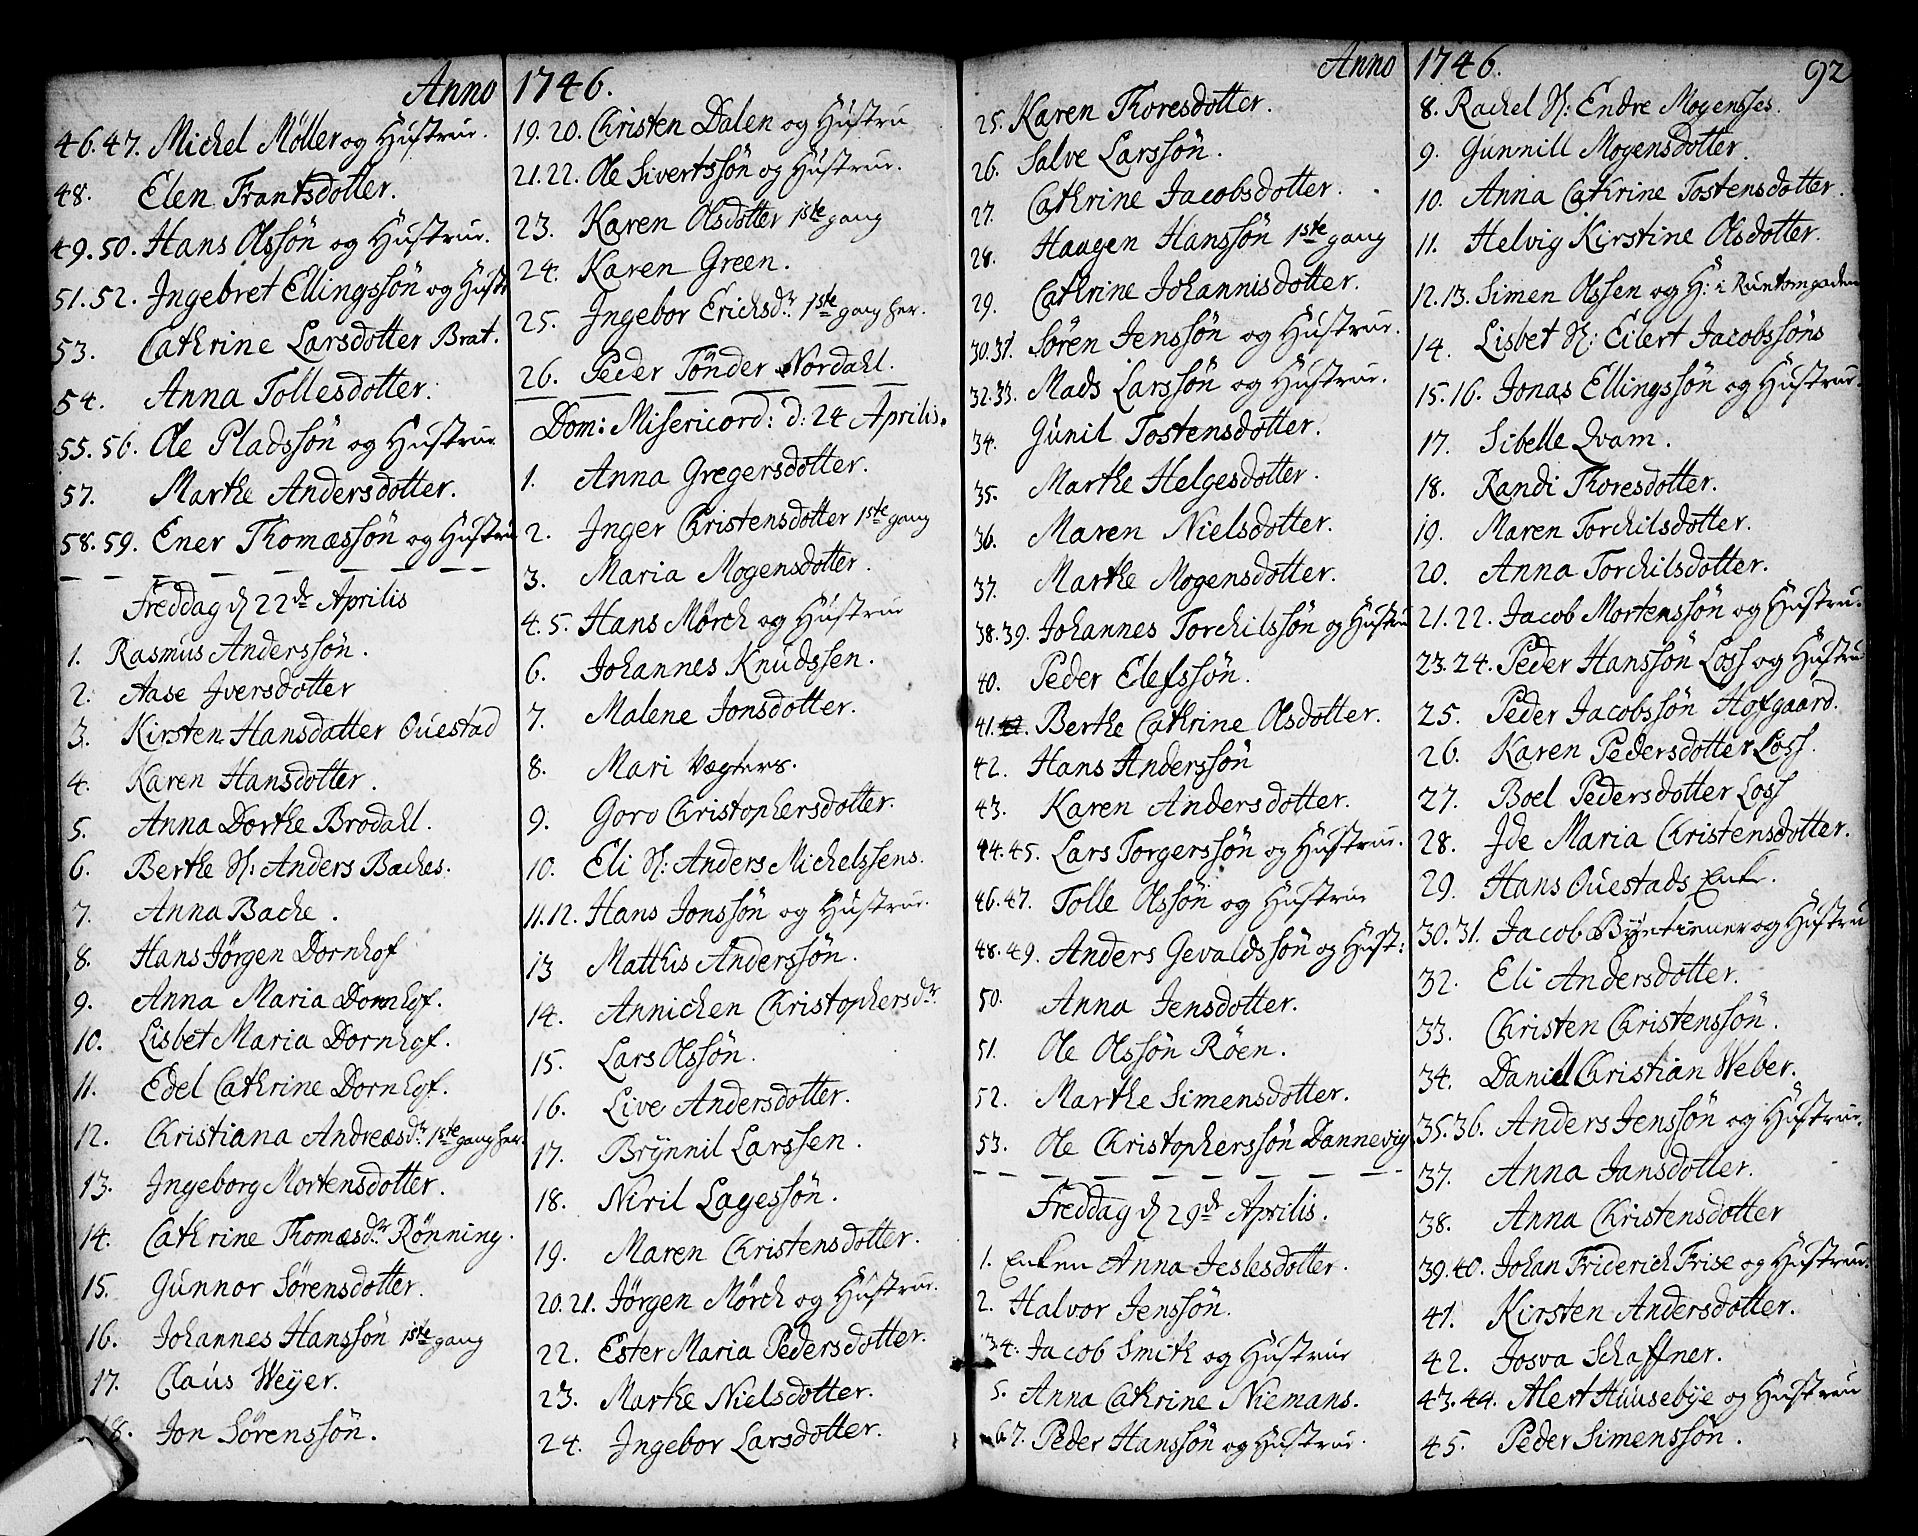 Anno 1746.
46.47. Michel Møller og Hustrue.
48. Elen Frantsdotter.
49.50. Hans Olssøn og Hustrue.
51.52. Ingebret Ellingssøn og Hustr
53. Cathrine Larsdotter Brat.
54. Anna Tollesdotter.
55.56. Ole Pladssøn og Hustrue
57. Marthe Andersdotter.
58.59. Ener Thomæssøn og Hustrue
Freddag d 22de Aprilis
1. Rasmus Anderssøn.
2. Aase Iversdotter
3. Kirsten Hansdatter Ouestad
4. Karen Hansdotter.
5. Anna Dorthe Brodahl.
6. Berthe H: Anders Baches.
7. Anna Bache.
8. Hans Jørgen Dornhof
9. Anna Maria Dornhof.
10. Lisbet Maria Dornhof.
11. Edel Cathrine Dornhof.
12. Christiana Andreæsdr. 1ste gang her.
13. Ingeborg Mortensdotter.
14. Cathrine Thomæsdr. Rønning.
15. Gunnor Sørensdotter.
16. Johannes Hanssøn 1ste gang
17. Claus Weyer.
18. Jon Sørenssøn.
19.20. Christen Dalen og Hustru
21.22. Ole Sivertssøn og Hustrue.
23. Karen Olsdotter 1ste gang
24. Karen Green.
25. Ingebor Erichsdr. 1ste gang her.
26. Peder Tønder Nordahl.
Dom: Misericord: d: 24 Aprilis.
1. Anna Gregersdotter.
2. Inger Christensdotter 1ste gang
3. Maria Mogensdotter.
4.5. Hans Mørch og Hustrue
6. Johannes Knudssen.
7. Malene Jonsdotter.
8. Mari Vægters.
9. Goro Christophersdotter.
10. Eli H: Anders Michelssens.
11.12. Hans Jonssøn og Hustrue.
13 Matthis Anderssøn.
14. Annichen Christophersdr.
15. Lars Olssøn.
16. Live Andersdotter.
17. Brynnil Larssen.
18. Niril Lagessøn.
19. Maren Christensdotter.
20.21. Jørgen Mørch og Hustrue.
22. Ester Maria Pedersdotter.
23. Marthe Nielsdotter.
24. Ingebor Larsdotter.
Anno 1746. 92
25. Karen Thoresdotter.
26. Salve Larssøn.
27. Cathrine Jacobsdotter.
28. Haagen Hanssøn 1ste gang
29. Cathrine Johannisdotter.
30.31. Søren Jenssøn og Hustrue.
32.33. Mads Larssøn og Hustrue.
34. Gunil Tostensdotter.
35. Marthe Helgesdotter.
36. Maren Nielsdotter.
37. Marthe Mogensdotter.
38.39. Johannes Torchilssøn og Hustru
40. Peder Elefssøn.
41. 42. Berthe Cathrine Olsdotter.
42. Hans Anderssøn
43. Karen Andersdotter.
44.45. Lars Torgerssøn og Hustrue.
46.47. Tolle Olssøn og Hustrue
48.49. Anders Gevaldssøn og Hust:
50. Anna Jensdotter.
51. Ole Olssøn Røen.
52. Marthe Simensdotter.
53. Ole Christopherssøn Dannevig
Freddag d 29de Aprilis.
1. Enken Anna Jeslesdotter.
2. Halvor Jenssøn.
34. Jacob Smith og Hustrue
5. Anna Cathrine Niemans.
67. Peder Hanssøn og Hustrue.
8. Rachel H: Endre Mogensses.
9. Gunnill Mogensdotter
10. Anna Cathrine Tostensdotter.
11. Helvig Kirstine Olsdotter.
12.13. Simen Olssen og H: i Runtomgaden
14. Lisbet H: Eilert Jacobssøns
15.16. Jonas Ellingssøn og Hustrue.
17. Sibelle Qvam.
18. Randi Thoresdotter.
19. Maren Torchilsdotter.
20. Anna Torchilsdotter.
21.22. Jacob Mortenssøn og Hustru.
23.24. Peder Hanssøn Loss og Hustru
25. Peder Jacobssøn Hofgaard.
26. Karen Pedersdotter Loss.
27. Boel Pedersdotter Loss
28. Ide Maria Christensdotter.
29. Hans Ouestads Enke.
30.31. Jacob Byetiener og Hustru
32. Eli Andersdotter.
33. Christen Christenssøn.
34. Daniel Christian Weber.
35.36. Anders Jenssøn og Hustrue.
37. Anna Jansdotter.
38. Anna Christensdotter
39.40. Johan Friderich Frise og Hustrue.
41. Kirsten Andersdotter.
42. Josva Schaffner.
43.44. Alert Huusebye og Hustrue
45. Peder Simenssøn.